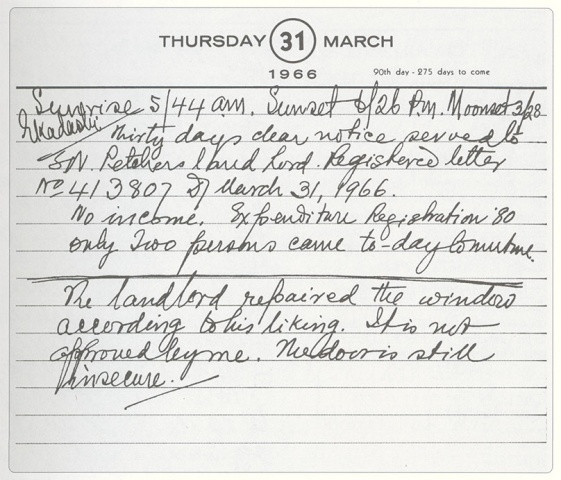 THURSDAY 31 MARCH
1966
90th day - 275 days to come
Sunrise 5/44 a.m. Sunset 6/26 P.m. Moonset 3/28
Ekadashi.
Thirty days clear notice served to
S.N. Petchers land Lord. Registered letter
No 413807 D/ March 31, 1966.
No income. Expenditure Registration '80
only Two persons came to-day
The landlord repaired the window
according to his liking. It is not
approved by me. The door is still
insecure.